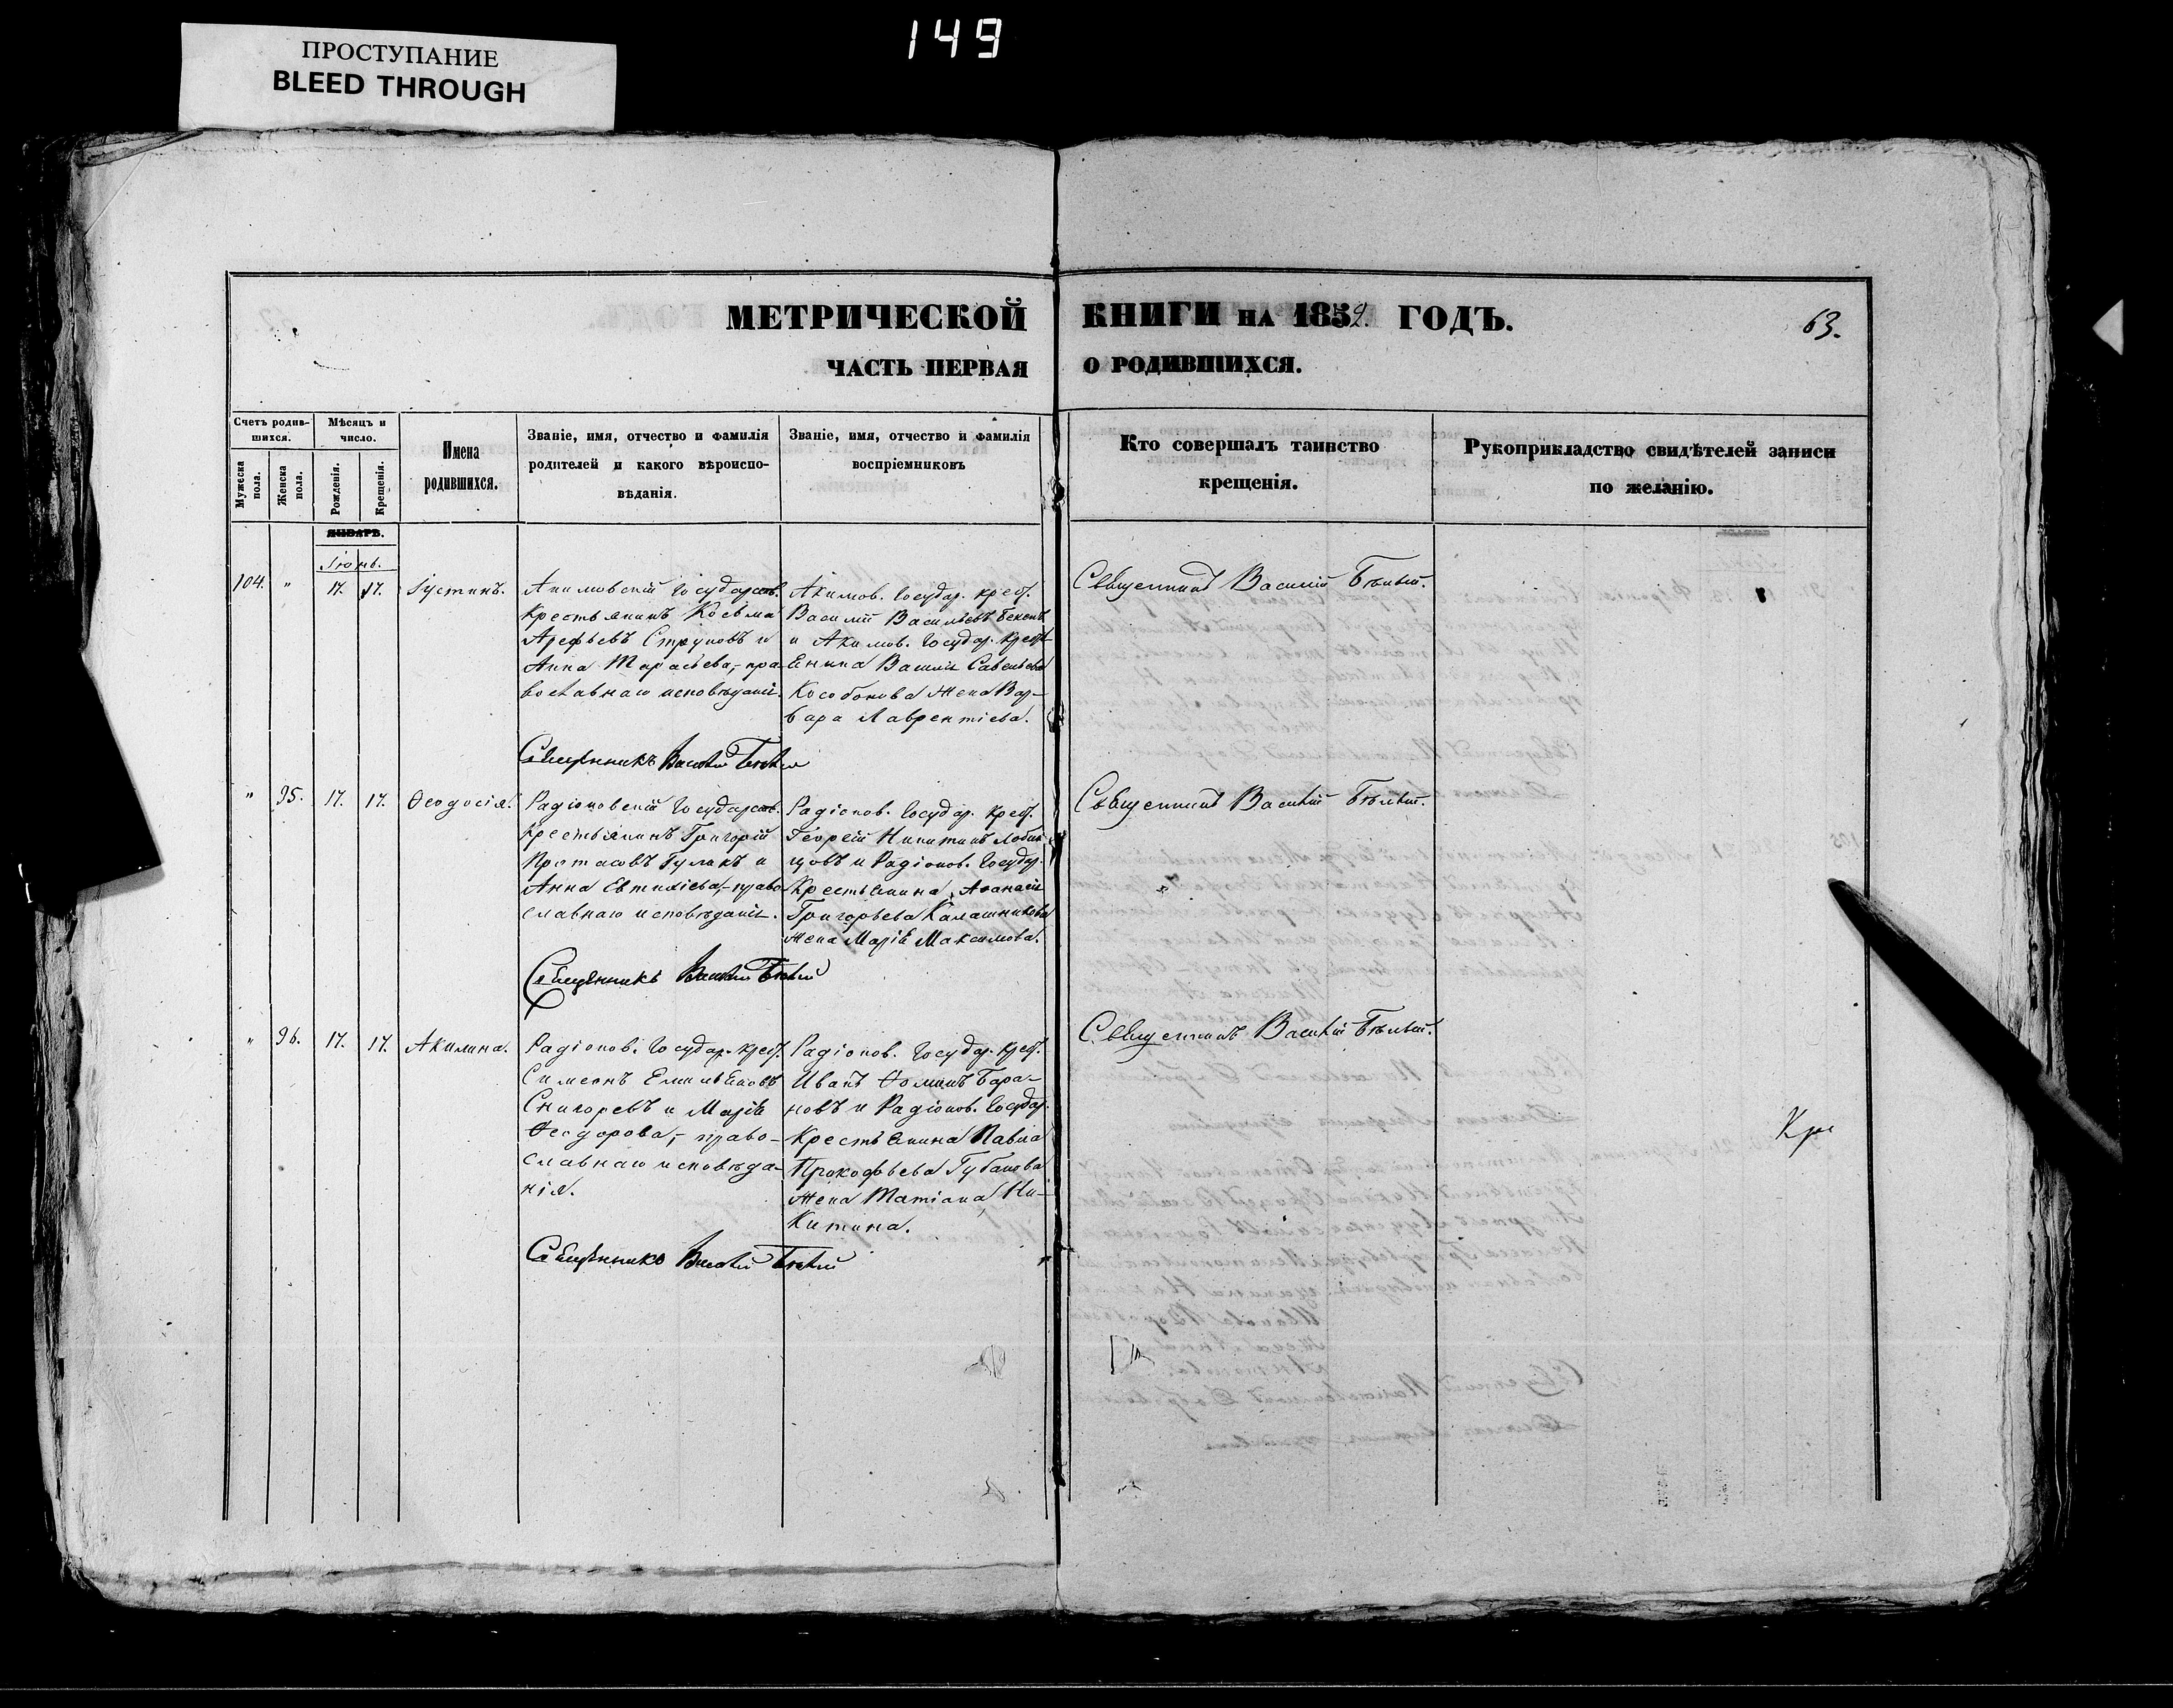 149
ПРОСТУПАНИЕ
BLEED THROUGH
МЕТРИЧЕСКОЙ КНИГИ НА 1859. ГОДЪ.
63.
ЧАСТЬ ПЕРВАЯ О РОДИВШИХСЯ.
Счетъ родив-
шихся.
Мужеска пола.
Женска пола.
Мѣсяцъ и
число.
Рожденія.
Крещенія.
Имена
родившихся.
Званіе, имя, отчество и фамилія
родителей и какого вѣроиспо-
вѣданія.
Званіе, имя, отчество и фамилія
воспріемниковъ
Кто совершалъ таинство
крещенія.
Рукоприкладство свидѣтелей записи
по желанію.
ЯНВАРЬ.
Іюнь.
104. " 17. 17. Іустинъ.
Акимовскій Государств.
крестьянинъ Косьма
Арефьевъ Струковъ и
Анна Тарасьева,- пра-
вославнаго исповѣданія.
Акимов. Государ. крест.
Василій Васильевъ
и Акимов. Государ. крестья-
янина Василія Савельева
жена Вар-
вара Лаврентіева.
Священникъ Василій Бѣлый.
Священникъ Василій Бѣлый
" 95. 17. 17. Ѳеодосія.
Радіоновскій Государств.
крестьянинъ Григорій
Протасовъ Гулакъ и
Анна Евтихіева,- право-
славнаго исповѣданія.
Радіонов. Государ. крест.
Георгій Никитинъ
и Радіонов. Государ.
крестьянина Аѳанасія
Григорьева Калашникова
жена Марія Максимова.
Священникъ Василій Бѣлый.
Священникъ Василій Бѣлый
" 96. 17. 17. Акилина.
Радіонов. Государ. крест.
Симеонъ Емильяновъ
Снигоревъ и Марія
Ѳеодорова,- право-
славнаго исповѣда-
нія.
Радіонов. Государ. крест.
Иванъ Ѳоминъ Бара-
новъ и Радіонов. Государ.
крестьянина Павла
Прокофьева Губанова
жена Татіана Ни-
китина.
Священникъ Василій Бѣлый.
Священникъ Василій Бѣлый